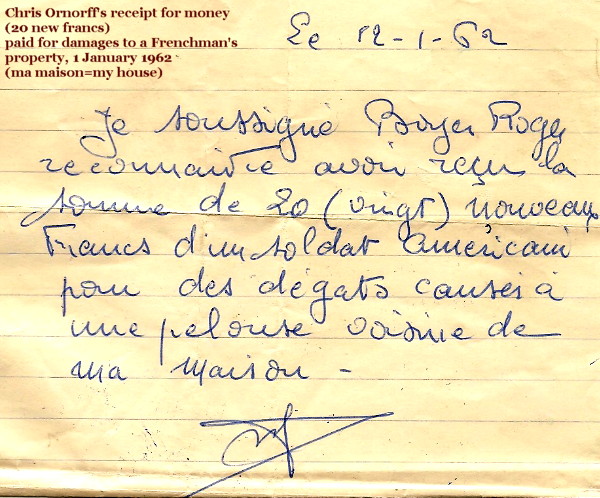 Chris Ornorff's receipt for money
(20 new francs)
paid for damages to a Frenchman's
property, 1 January 1962
(ma maison=my house)
Le 12-1-62
Je soussigné Boyer Roger
reconnaitre avoir reçu la
somme de 20 (vingt) nouveaux
Francs d'un soldat Américain
pour des dégats causés à
une pelouse voisine de
ma maison -